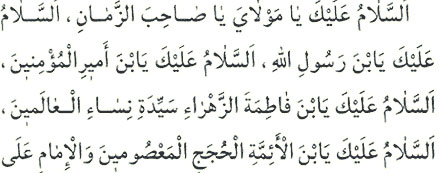 اَلسَّلَامُ عَلَيْكَ يَا مَوْلَايَ يَا صَاحِبَ الزَّمَانِ، اَلسَّلَامُ
عَلَيْكَ يَابْنَ رَسُولِ اللهِ، اَلسَّلَامُ عَلَيْكَ يَابْنَ أَمِيرِ الْمُؤْمِنِينَ،
اَلسَّلَامُ عَلَيْكَ يَابْنَ فَاطِمَةَ الزَّهْرَاءِ سَيِّدَةِ نِسَاءِ الْعَالَمِينَ،
اَلسَّلَامُ عَلَيْكَ يَابْنَ الْأَئِمَّةِ الْحُجَجِ الْمَعْصُومِينَ وَالْإِمَامِ عَلَى